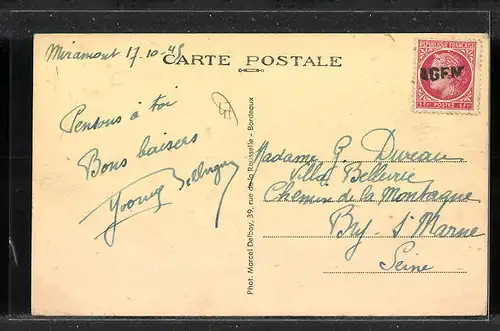 Miramont 17-10-45
CARTE POSTALE
REPUBLIQUE FRANÇAISE
AGEN
1F POSTES 1F
Pensons à toi
Bons baisers
Yvonne
Madame G. Dureau
Villa Bellevue
Chemin de la Montagne
Bry s/ Marne
Seine
Phot. Marcel Delboy, 39, rue de la Rousselle - Bordeaux